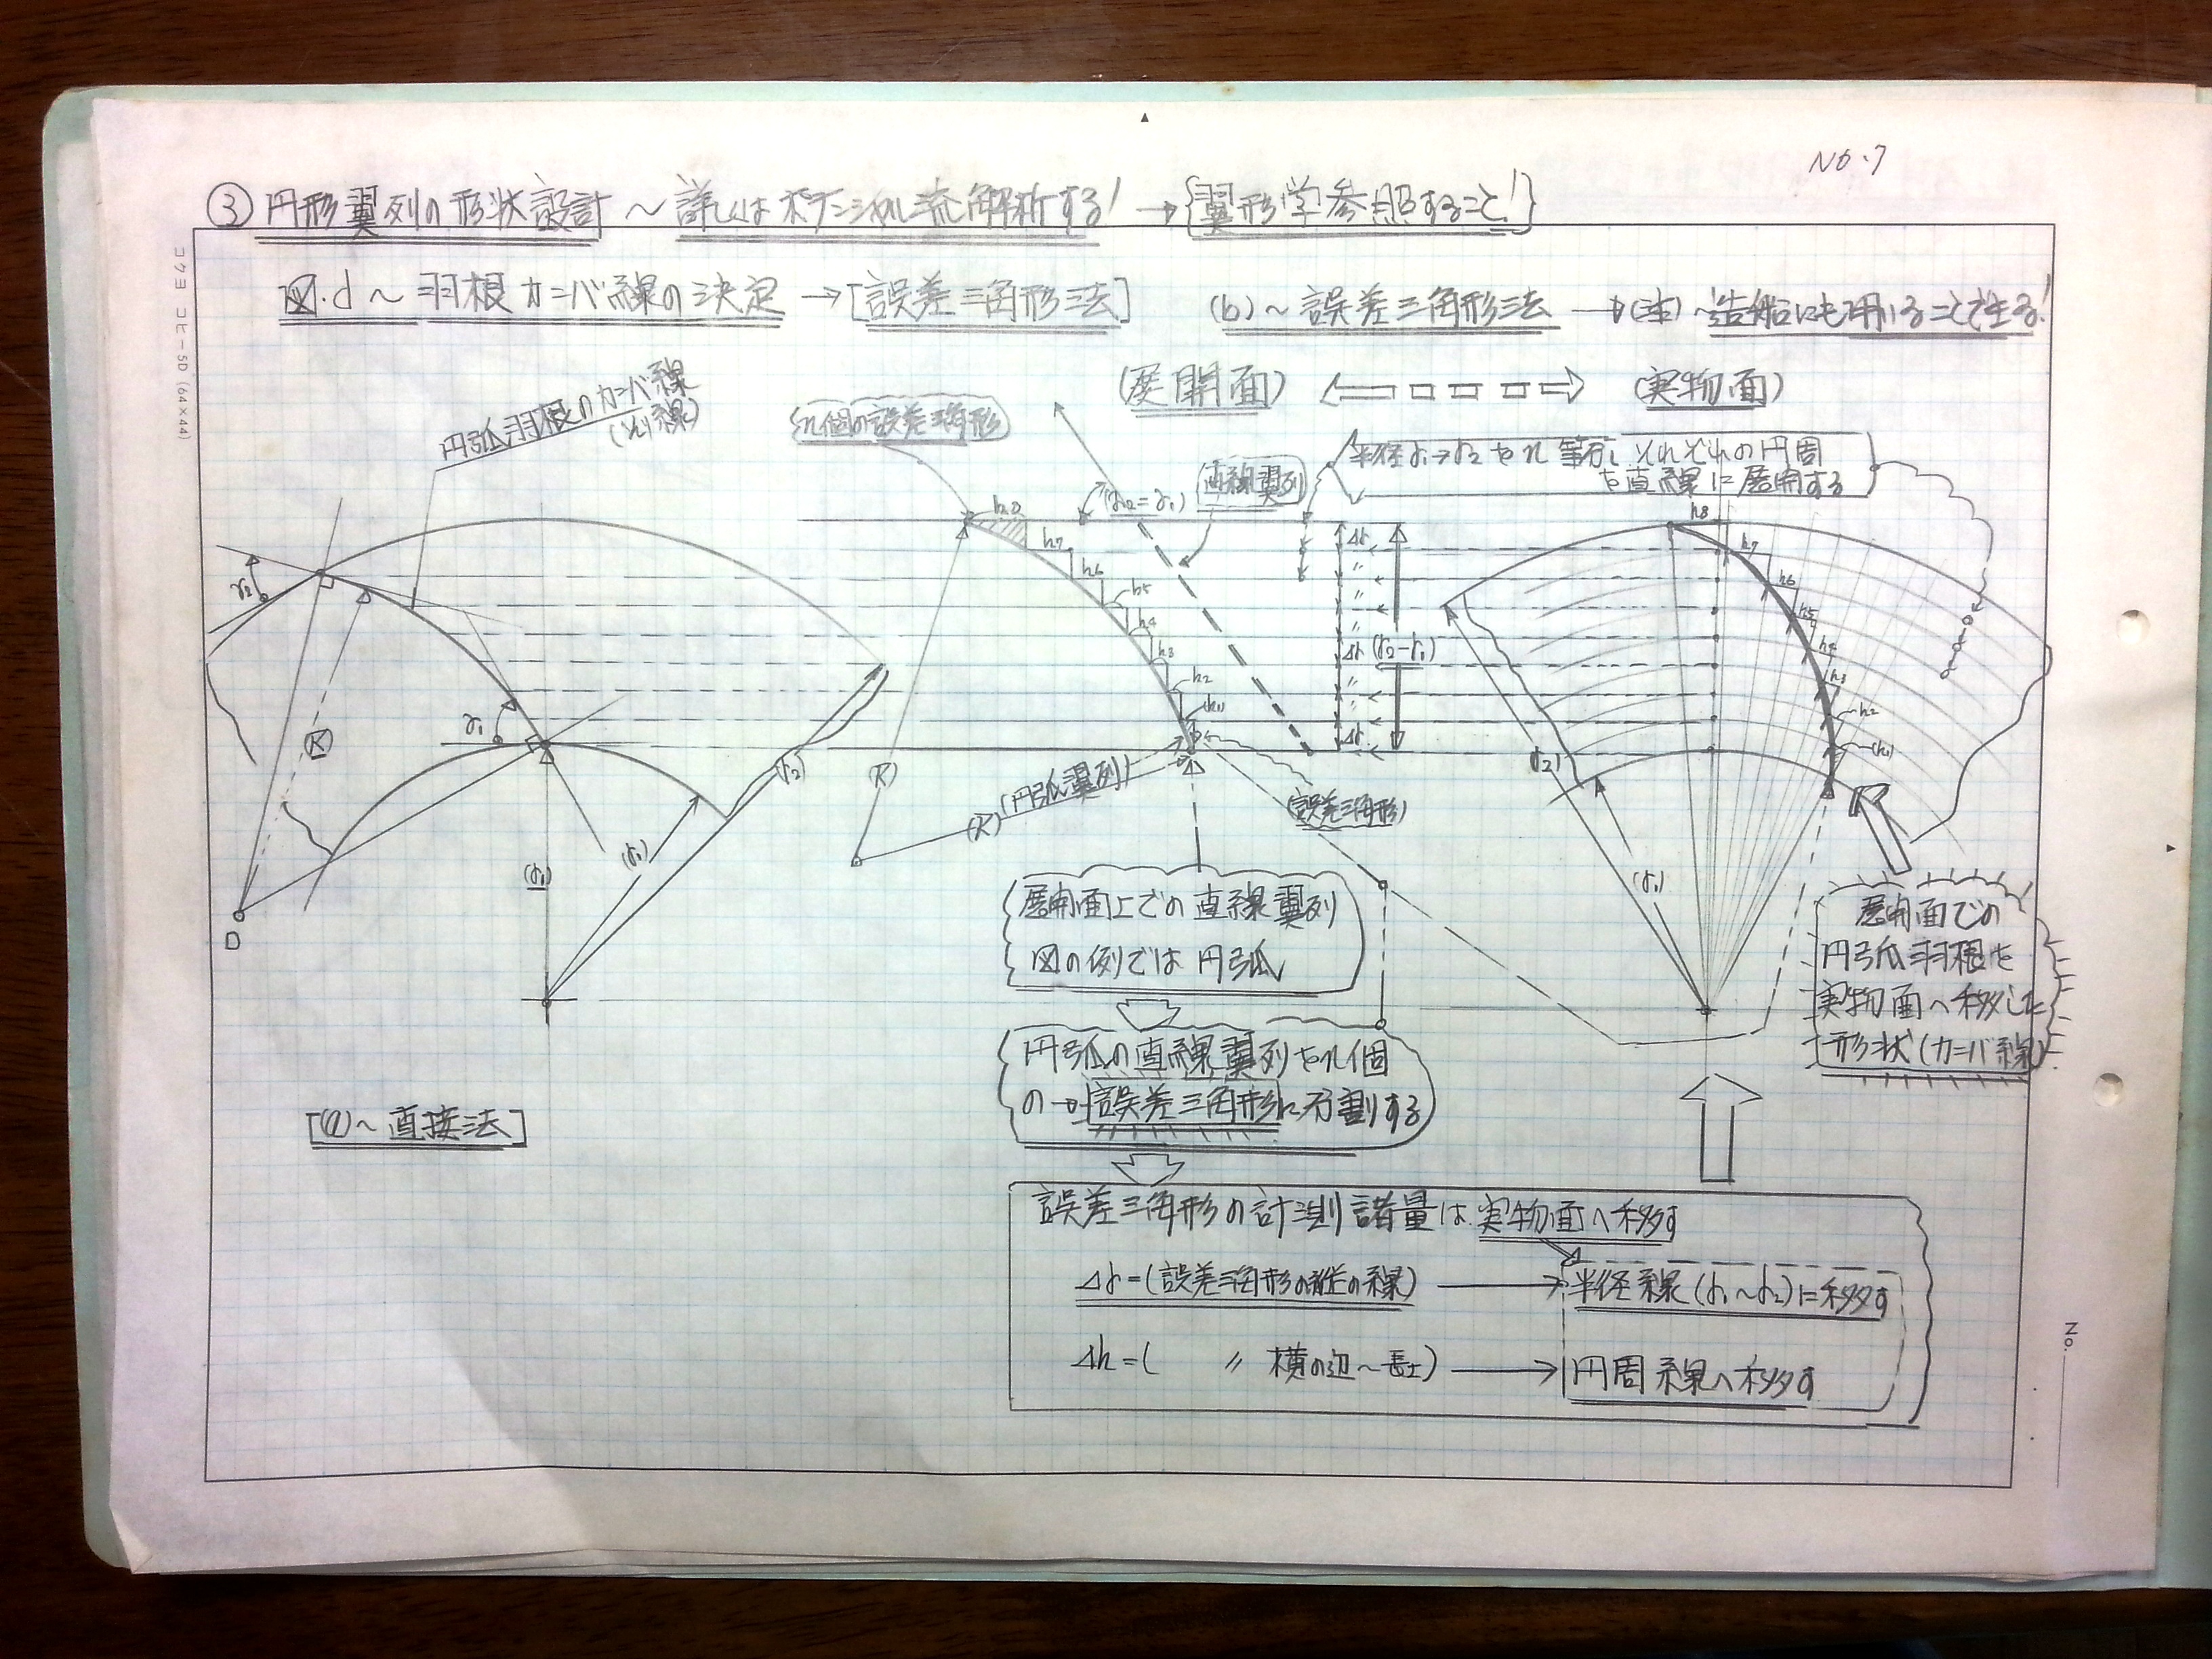 No.7
③円形翼列の形状設計 〜 詳しくはポテンシャル流解析する! →{翼形学参照すること!}
図.d 〜 羽根カンバ線の決定 →[誤差三角形法]
(b)〜誤差三角形法 →(注)〜造船にも用いることできる!
(展開面)
(実物面)
円弧羽根のカンバ線
(そり線)
n個の誤差三角形
直線翼列
半径r1→r2をn等分しそれぞれの円周
を直線に展開する
(γ2=γ1)
h8
h7
h6
h5
h4
h3
h2
(h1)
Δr
〃
〃
〃
Δr
〃
〃
Δr
(r2-r1)
h8
h7
h6
h5
h4
h3
h2
(h1)
γ2
γ1
R
(R)
(R)
(円弧翼列)
(誤差三角形)
(r2)
(r1)
(r1)
r2)
(r1)
O
展開面上での直線翼列
図の例では円弧
円弧の直線翼列をn個
の→誤差三角形に分割する
展開面での
円弧羽根を
実物面へ移した
形状(カンバ線)
[(a)〜直接法]
誤差三角形の計測諸量は実物面へ移す
Δr=(誤差三角形の縦の線) → 半径線(r1〜r2)に移す
Δh=( 〃 横の辺〜長さ) → 円周線へ移す
コクヨ コヒ-5D (64×44)
No.